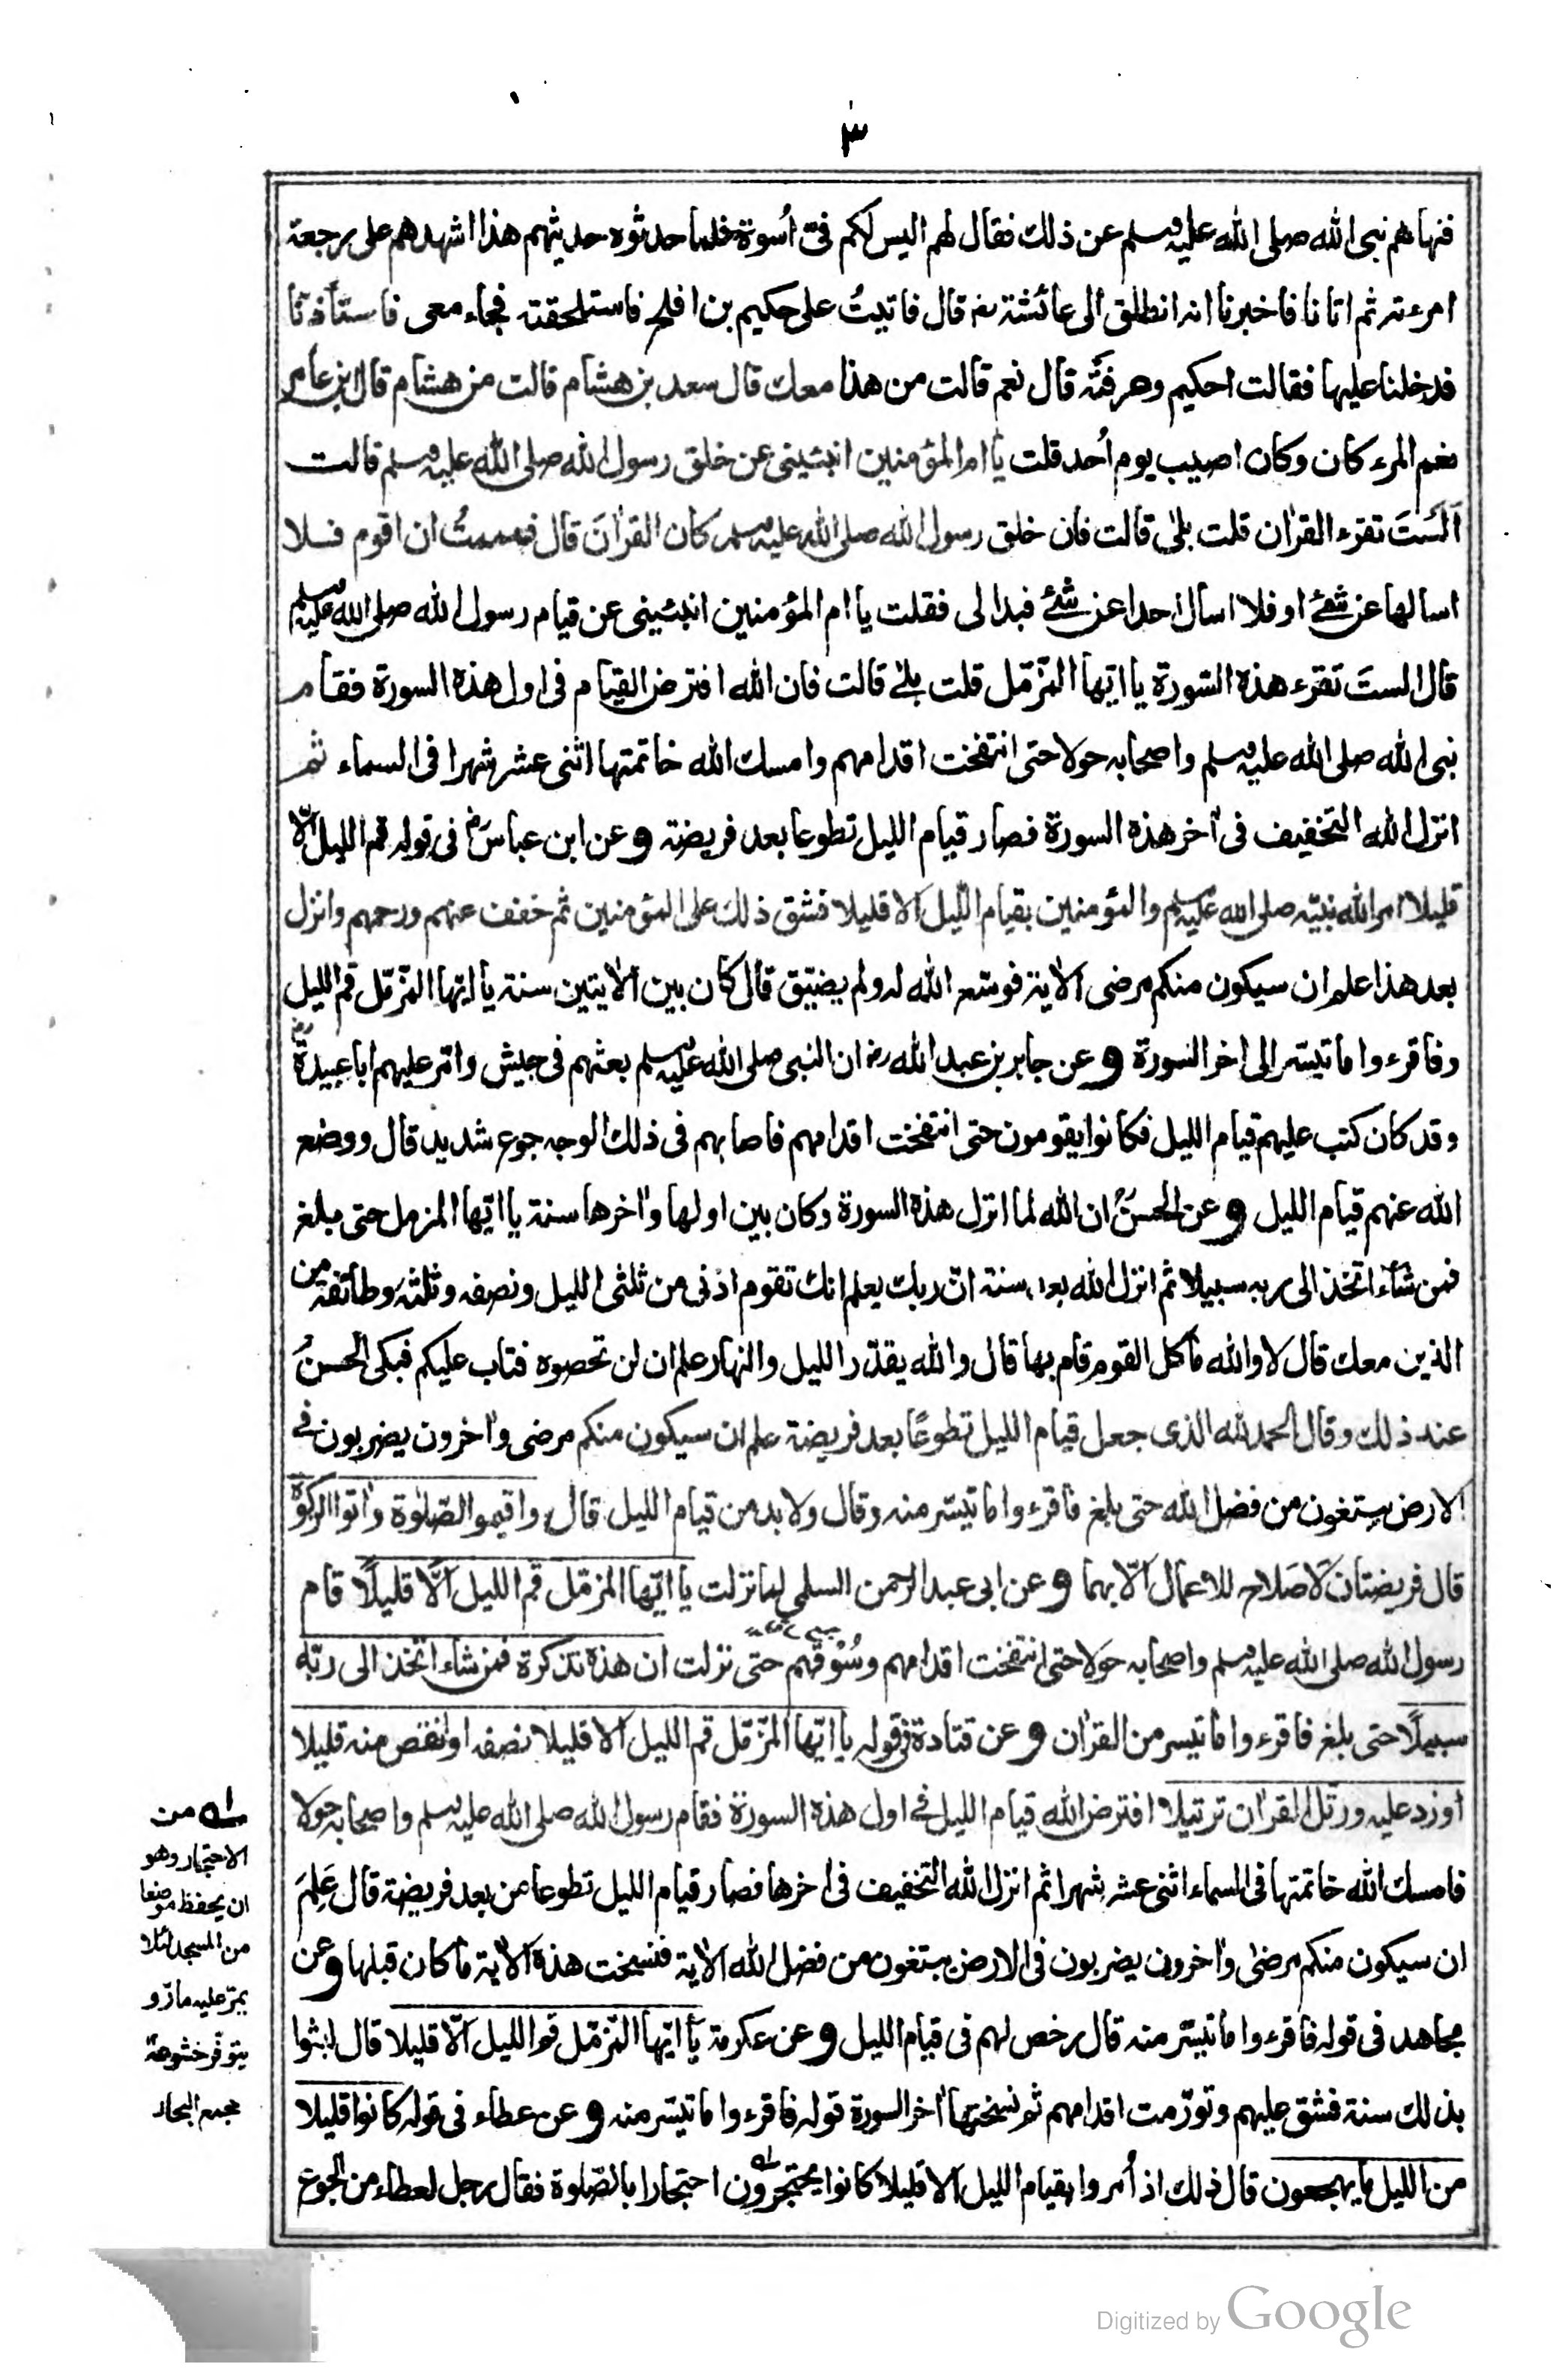 ٣
فنهاهم نبى الله صلى الله عليه وسلم عن ذلك فقال لهم اليس لكم فىّ اُسوة فلما حدثوه حديثهم هذا اشهدهم على رجعة
امرءته ثم اتانا فاخبرنا انه انطلق الى عائشة رض قال فاتيتُ على حكيم بن افلح فاستلحقته فجاء معى فاستأذنا
فدخلنا عليها فقالت احكيم وعرفتَه قال نعم قالت من هذا معك قال سعد بن هشام قالت من هشام قال ابن عامر
نعم المرء كان وكان اصيب يوم اُحد قلت يا ام المؤمنين انبئينى عن خلق رسول الله صلى الله عليه وسلم قالت
اَلَستَ تقرء القراٰن قلت بلىٰ قالت فان خلق رسول الله صلى الله عليه وسلم كان القراٰنَ قال فهممتُ ان اقوم فلا
اسالها عن شئ او فلا اسال احدا عن شئ فبدا لى فقلت يا ام المؤمنين انبئينى عن قيام رسول الله صلى الله عليه وسلم
قال الستَ تقرء هذه السّورة يا ايّها المزّمّل قلت بلى قالت فان الله افترض القيام فى اول هذه السورة فقام
نبى الله صلى الله عليه وسلم واصحابه حولا حتى انتفخت اقدامهم وامسك الله خاتمتها اثنى عشر شهرا فى السماء ثم
انزل الله التخفيف فى اٰخر هذه السورة فصار قيام الليل تطوعا بعد فريضته و عن ابن عباس رض فى قوله قم الليل الّا
قليلا امر الله نبيّه صلى الله عليه وسلم والمؤمنين بقيام اللّيل الا قليلا فشق ذلك على المؤمنين ثم خفف عنهم ورحمهم وانزل
بعد هذا علم ان سيكون منكم مرضى الاٰية فوسّعه الله له ولم يضيّق قال كان بين الاٰيتين سنة يا ايّها المزّمّل قم الليل
وفاقرءوا ما تيسّر الى اخر السورة و عن جابر بن عبد الله رض ان النبى صلى الله عليه وسلم بعثهم فى جيش وامّر عليهم ابا عبيدة رض
وقد كان كتب عليهم قيام الليل فكانوا يقومون حتى انتفخت اقدامهم فاصابهم فى ذلك الوجه جوع شديد قال ووضع
الله عنهم قيام الليل و عن الحسنؒ ان الله لما انزل هذه السورة وكان بين اولها واٰخرها سنة يا ايّها المزمل حتى بلغ
فمن شآء اتخذ الى ربه سبيلا ثم انزل الله بعد سنة انّ ربك يعلم انك تقوم ادنى من ثلثى الليل ونصفه وثلثه وطائفة من
الذين معك قال لا والله ما كل القوم قام بها قال والله يقدّر الليل والنهار علم ان لن تحصوه فتاب عليكم فبكى الحسنؒ
عند ذلك وقال الحمد لله الذى جعل قيام الليل تطوعًا بعد فريضة علم ان سيكون منكم مرضى واٰخرون يضربون فى
الارض يبتغون من فضل الله حتى بلغ فاقرءوا ما تيسّر منه وقال ولا بد من قيام الليل قال واقيموا الصّلوٰة واٰتوا الزكوٰة
قال فريضتان لا صَلاح للاعمال الّا بهما و عن ابى عبد الرحمن السلمى لما نزلت يا ايّها المزمّل قم الليل الّا قليلًا قام
رسول الله صلى الله عليه وسلم واصحابه حَولا حتى انتفخت اقدامهم وسُوْقهم حتى نزلت ان هذه تذكرة فمن شاء اتخذ الى ربّه
سبيلًا حتى بلغ فاقرءوا ما تيسر من القراٰن و عن قتادة فى قوله يا ايّها المزّمّل قم الليل الا قليلا نصفه او انقص منه قليلا
او زد عليه ورتّل القراٰن ترتيلا افترض الله قيام الليل فى اول هذه السورة فقام رسول الله صلى الله عليه وسلم واصحابه حولا
فامسك الله خاتمتها فى السماء اثنى عشر شهرا ثم انزل الله التخفيف فى اٰخرها فصار قيام الليل تطوعا من بعد فريضة قال عَلِمَ
ان سيكون منكم مرضىٰ واٰخرون يضربون فى الارض يبتغون من فضل الله الاٰية فنسخت هذه الاٰية ما كان قبلها و عن
مجاهد فى قوله فاقرءوا ما تيسّر منه قال رخص لهم فى قيام الليل و عن عكرمة يا ايّها المزّمّل قم الليل الّا قليلا قال لبثوا
بذلك سنة فشق عليهم وتورّمت اقدامهم ثم نسختها اٰخر السورة قوله فاقرءوا ما تيسّر منه و عن عطاء فى قوله كانوا قليلا
من الليل ما يهجعون قال ذلك اذ اُمروا بقيام الليل الا قليلا كانوا يحتجرون احتجارا بالصّلوة فقال رجل لعطاء من الجوع
له من
الاحتجار وهو
ان يحفظ موضعا
من المسجد لئلا
يمرّ عليه مارّ و
يتوفّر خشوعه
مجمع البحار
Digitized by Google